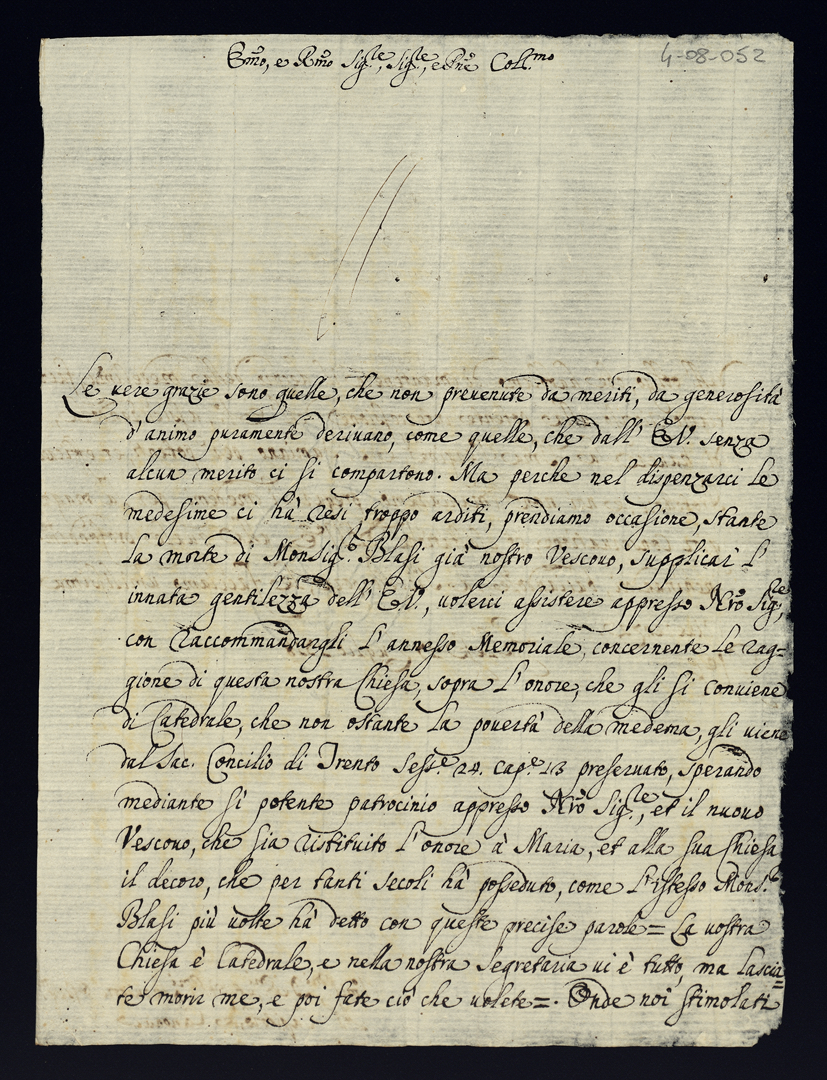 4-08-052
Emo, e Rmo Sig.re, Sig.re, e Pñe Coll.mo
Le vere grazie sono quelle, che non prevenute da meriti, da generosità
d'animo puramente derivano, come quelle, che dall' E.V. senza
alcun merito ci si compartono. Ma perche nel dispenzarci le
medesime ci hà resi troppo arditi, prendiamo occasione, stante
la morte di Monsig.r Blasi già nostro Vescovo, supplicar l'
innata gentilezza dell' E.V., volerci assistere appresso Nrõ Sig.re,
con raccommandargli l'annesso Memoriale, concernente le rag=
gione di questa nostra Chiesa, sopra l'onore, che gli si conviene
di Catedrale, che non ostante la povertà della medema, gli viene
dal Sac. Concilio di Trento Sess.e 24. Cap.e 13 preservato, sperando
mediante sì potente patrocinio appresso Nrõ Sig.re, et il nuovo
Vescovo, che sia restituito l'onore à Maria, et alla sua Chiesa
il decoro, che per tanti secoli hà posseduto, come l'istesso Mons.r
Blasi più volte hà detto con queste precise parole = La vostra
Chiesa è Catedrale, e nella nostra Segretaria vi è tutto, ma lascia=
te morir me, e poi fate ciò che volete =. Onde noi stimolati